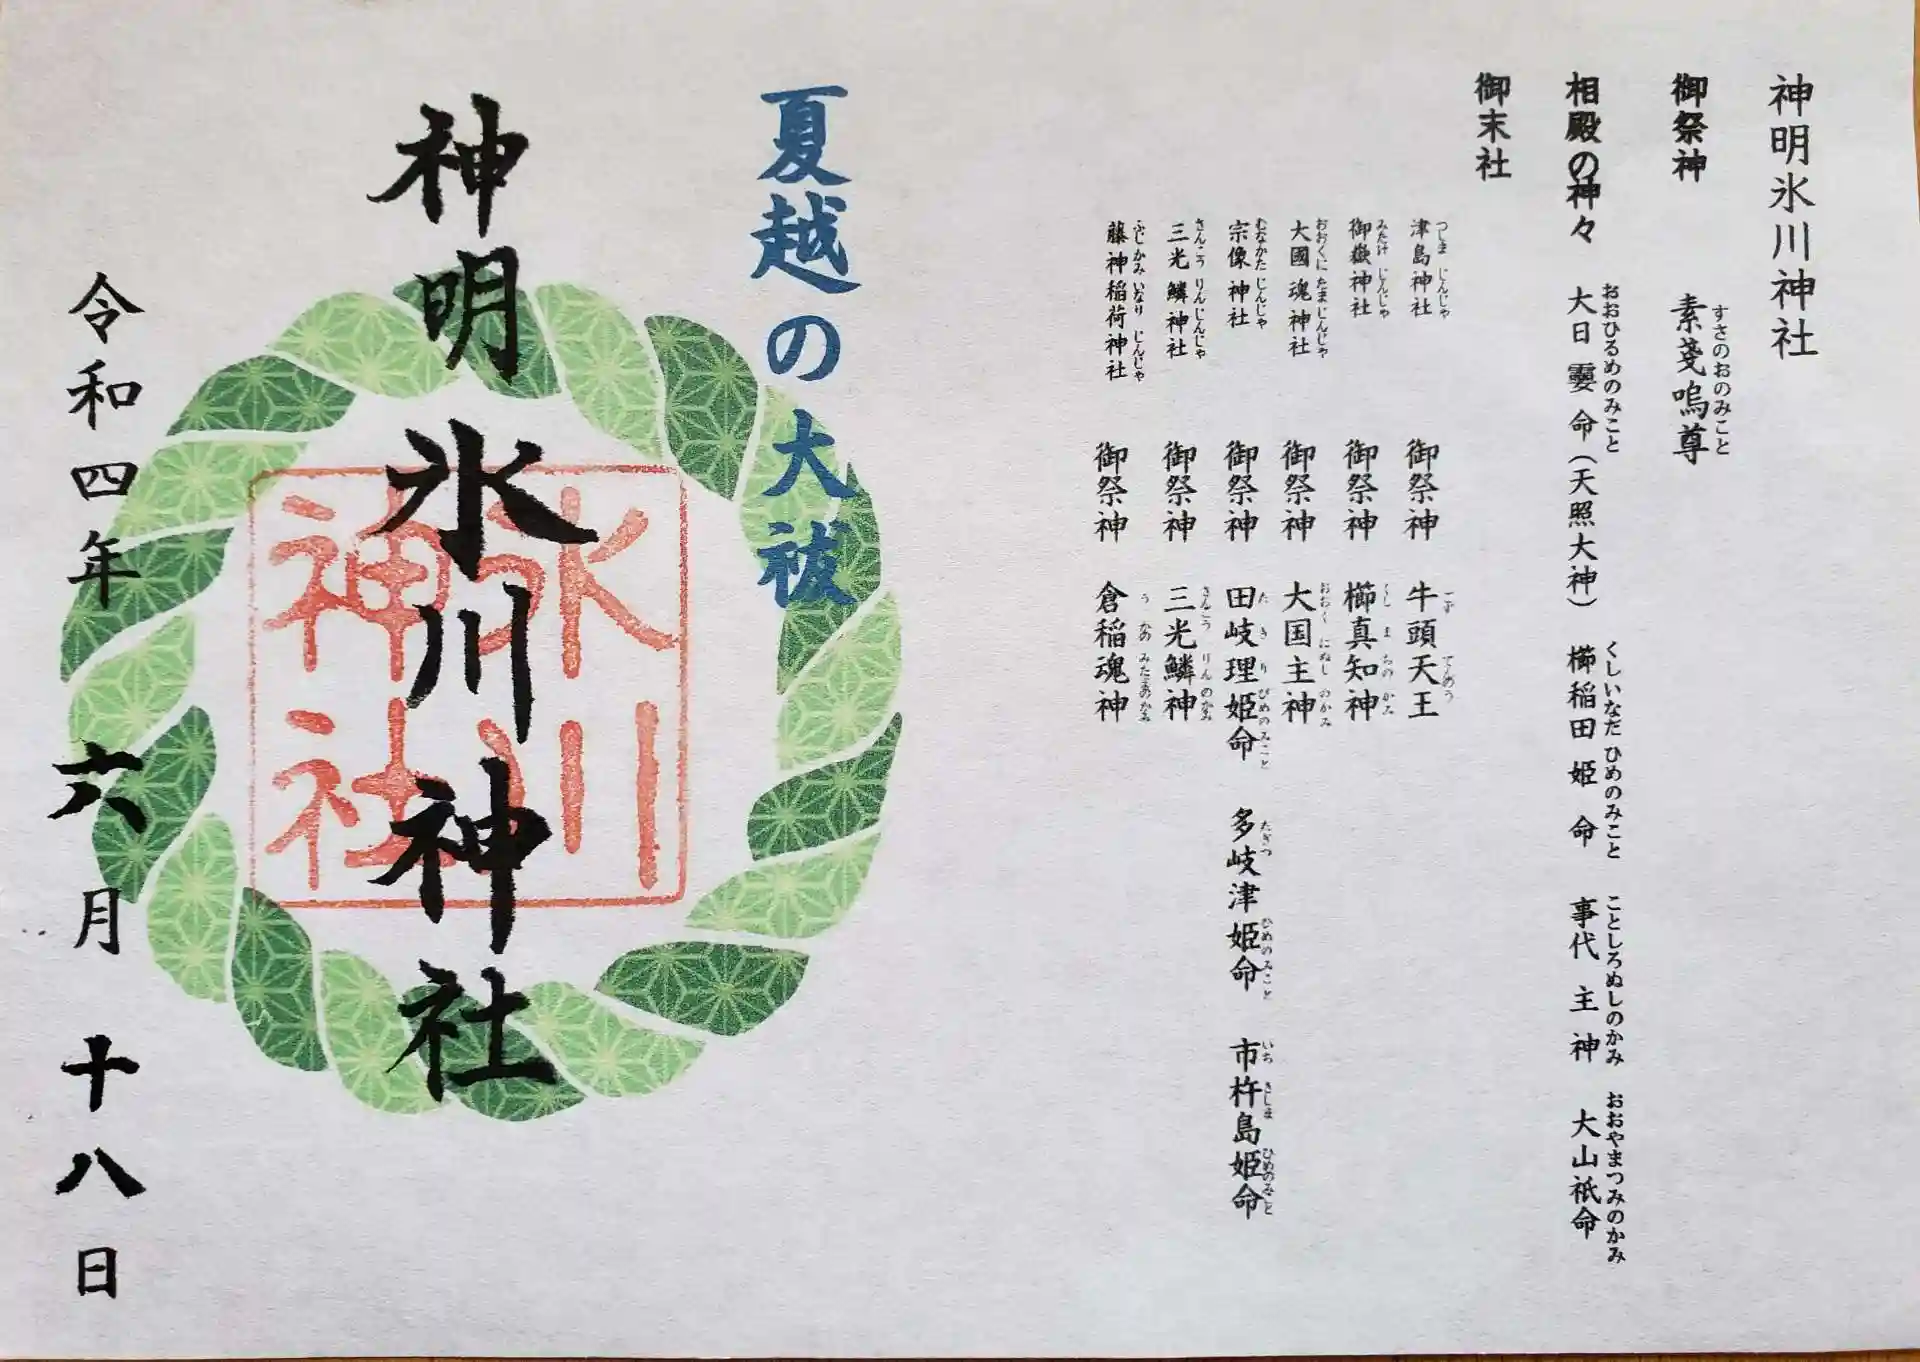 神明氷川神社
御祭神 素戔嗚尊
すさのおのみこと
相殿の神々 大日孁命（天照大神） 櫛稲田姫命 事代主神 大山祇命
おおひるめのみこと くしいなだひめのみこと ことしろぬしのかみ おおやまつみのかみ
御末社
津島神社 御祭神 牛頭天王
つしまじんじゃ ごずてんのう
御嶽神社 御祭神 櫛真知神
みたけじんじゃ くしまちのかみ
大國魂神社 御祭神 大国主神
おおくにたまじんじゃ おおくにぬしのかみ
宗像神社 御祭神 田岐理姫命 多岐津姫命 市杵島姫命
むなかたじんじゃ たきりびめのみこと たぎつひめのみこと いちきしまひめのみこと
三光鱗神社 御祭神 三光鱗神
さんこうりんじんじゃ さんこうりんのかみ
藤神稲荷神社 御祭神 倉稲魂神
ふじかみいなりじんじゃ うなのみたまのかみ
夏越の大祓
神明氷川神社
氷川神社
令和四年六月十八日